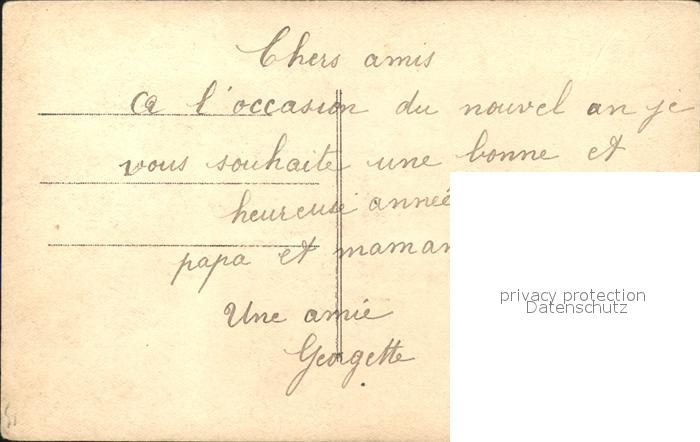 Chers amis
A l'occasion du nouvel an je
vous souhaite une bonne et
heureuse année
papa et maman
privacy protection
Datenschutz
Une amie
Georgette